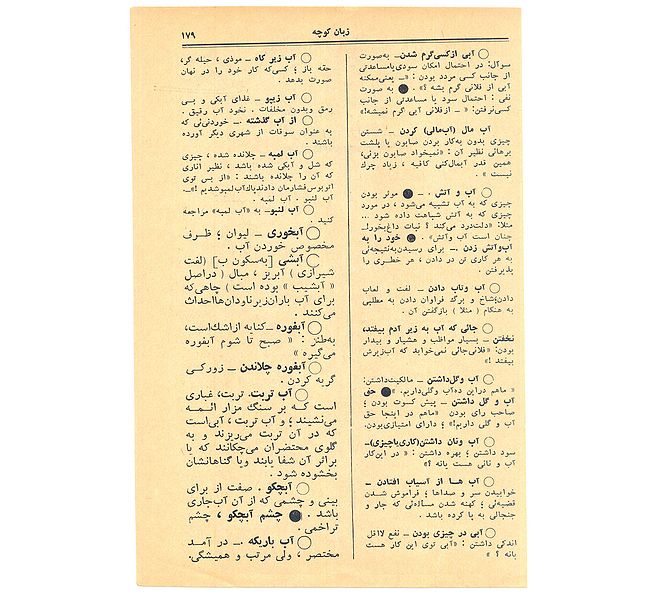 زبان کوچه
۱۷۹
آبی ازکسی‌گرم شدن ــ به‌صورت
سوآل: در احتمال امکان سودی یامساعدتی
از جانب کسی مردد بودن : «ــ یعنی‌ممکنه
آبی از فلانی گرم بشه ؟» . به صورت
نفی : احتمال سود یا مساعدتی از جانب
کسی نرفتن: «ــ ازفلانی آبی گرم نمیشه!»
آب مال (آب‌مالی) کردن ــ شستن
چیزی بدون به‌کار بردن صابون یا پلشت
برهائی نظیر آن : «نمیخواد صابون بزنی،
همین قدر آبمال‌کنی کافیه ، زیاد چرک
نیست » .
آب و آتش . ــ موثر بودن
چیزی که به آب تشبیه می‌شود ، در مورد
چیزی که به آتش شباهت داده شود ...
مثلا: «دلت‌درد می‌کند ؟ نبات داغ‌بخور!ــ
چنان است آب وآتش» . خود را به
آب‌وآتش زدن ــ . برای رسیدن‌به‌نتیجه‌ئی
به هر کاری تن در دادن ، هر خطری را
پذیرفتن .
آب وتاب دادن ــ لفت و لعاب
دادن؛شاخ و برگ فراوان دادن به مطلبی
به هنگام ( مثلا ) بازگفتن آن .
جائی که آب به زیر آدم بیفتد،
نخفتن ــ بسیار مواظب و هشیار و بیدار
بودن: «فلانی‌جائی نمی‌خوابد که آب‌زیرش
بیفتد !»
آب وگل‌داشتن ــ مالکیت‌داشتن:
« ماهم دراین ده‌آب وگلی‌داریم.» حق
آب و گل داشتن ــ پیش کسوت بودن ؛
صاحب رای بودن «ماهم در اینجا حق
آب و گلی داریم!» ؛ دارای امتیازی‌بودن.
آب ونان داشتن(کاری‌یاچیزی)ــ
سود داشتن ؛ بهره داشتن : « در این‌کار
آب و نانی هست یانه ؟»
آب هـا از آسیاب افتادن ــ
خوابیدن سر و صداها ؛ فراموش شـدن
قضیه‌ئی ؛ کهنه شدن مساله‌ئی که جار و
جنجالی به پا کرده باشد .
آبی در چیزی بودن ــ نفع لااقل
اندکی داشتن : «آبی توی این کار هست
یانه ؟ »
آب زیر کاه ــ موذی ، حیله گر،
حقه باز ؛ کسی‌که کار خود را در نهان
صورت بدهد .
آب زیپو ــ غذای آبکی و بی
رمق وبدون مخلفات . نخود آب رقیق .
از آب گذشته ــ . خوردنی‌ئی که
به عنوان سوقات از شهری دیگر آورده
باشند .
آب لمبه ــ چلانده شده ، چیزی
که شل و آبکی شده باشد ، نظیر اناری
که آن را چلانده باشند : «از بس توی
اتوبوس‌فشارمان دادندپاک آب‌لمبوشدیم !»ــ
آب لنبو . آب لمبه .
آب لنبو ــ به «آب لمبه» مراجعه
کنید .
آبخوری ــ لیوان ؛ ظـرف
مخصوص خوردن آب .
آبشی [به‌سکون ب] (لغت
شیرازی ) آبریز ، مبال ( دراصل
« آبشیب » بوده است ) چاهی‌که
برای آب باران‌زیرناودان‌هااحداث
می‌کنند .
آبغوره ــ کنایه ازاشك‌است،
به‌طنز : « صبح تا شوم آبغوره
می‌گیره »
آبغوره چلاندن ــ زورکـی
گریه کردن .
آب تربت. تربت، غباری
است کـه بر سنگ مزار ائمـه
می‌نشیند ؛ و آب تربت ، آبی‌است
که در آن تربت می‌ریزند و به
گلوی محتضران می‌چکانند که یا
براثر آن شفا یابند ویا گناهانشان
بخشوده شود .
آبچکو . صفت از برای
بینی و چشمی که از آن آب‌جاری
باشد . چشم آبچکو ، چشم
تراخمی .
آب باریکه . ــ در آمـد
مختصر ، ولی مرتب و همیشگی.